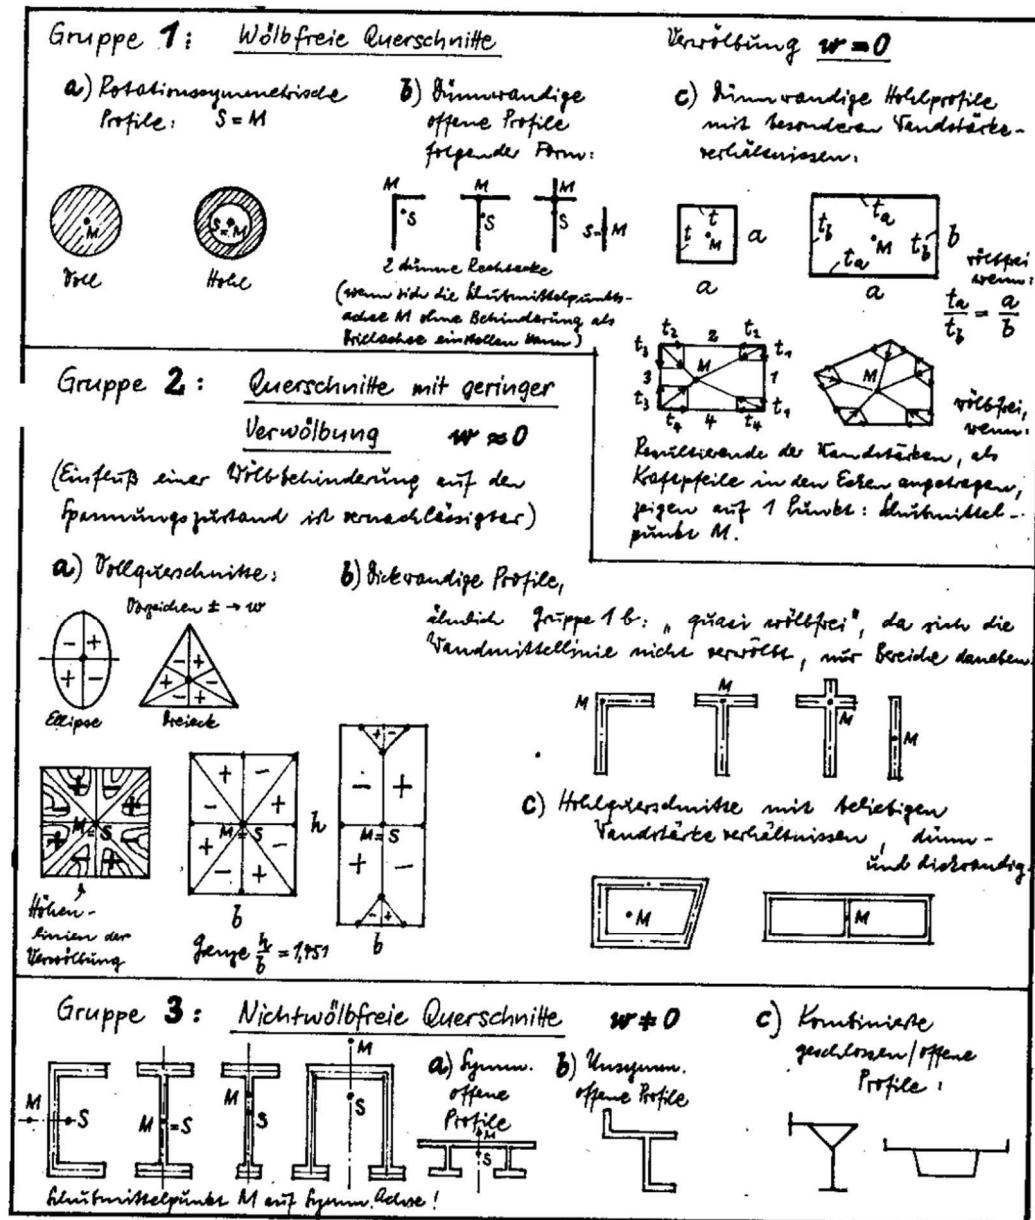 Gruppe 1: Wölbfreie Querschnitte
Verwölbung w = 0
a) Rotationssymmetrische
Profile: S = M
M
Voll
S = M
Hohl
b) Dünnwandige
offene Profile
folgender Form:
M
S
M
S
M
S
S = M
2 dünne Rechtecke
(wenn sich die Schubmittelpunkts-
achse M ohne Behinderung als
Drillachse einstellen kann)
c) Dünnwandige Hohlprofile
mit besonderen Wandstärke-
verhältnissen:
t
t M a
a
ta
tb M tb b
ta
a
wölbfrei
wenn:
ta/tb = a/b
t3 t2 2 t2 t1
3 M 1
t3 t4 4 t4 t1
M
wölbfrei,
wenn:
Resultierende der Wandstärken, als
Kraftpfeile in den Ecken angetragen,
zeigen auf 1 Punkt: Schubmittel-
punkt M.
Gruppe 2: Querschnitte mit geringer
Verwölbung w ≈ 0
(Einfluß einer Wölbbehinderung auf den
Spannungszustand ist vernachlässigbar)
a) Vollquerschnitte:
Vorzeichen ± → w
- +
+ -
Ellipse
- +
+ -
- +
Dreieck
M = S
Höhen-
linien der
Verwölbung
+ -
- +
M = S h
+ -
- +
b
Grenze h/b = 1,451
+ -
- +
M = S
+ -
- +
b
b) Dickwandige Profile,
ähnlich Gruppe 1 b: "quasi wölbfrei", da sich die
Wandmittellinie nicht verwölbt, nur Bereiche daneben
M
M
M
M
c) Hohlquerschnitte mit beliebigen
Wandstärkeverhältnissen, dünn-
und dickwandig
M
M
Gruppe 3: Nichtwölbfreie Querschnitte w ≠ 0
M S
M = S
M
S
M
S
a) Symm.
offene
Profile
M
S
b) Unsymm.
offene Profile
c) Kombinierte
geschlossen/offene
Profile:
Schubmittelpunkt M auf Symm. Achse!